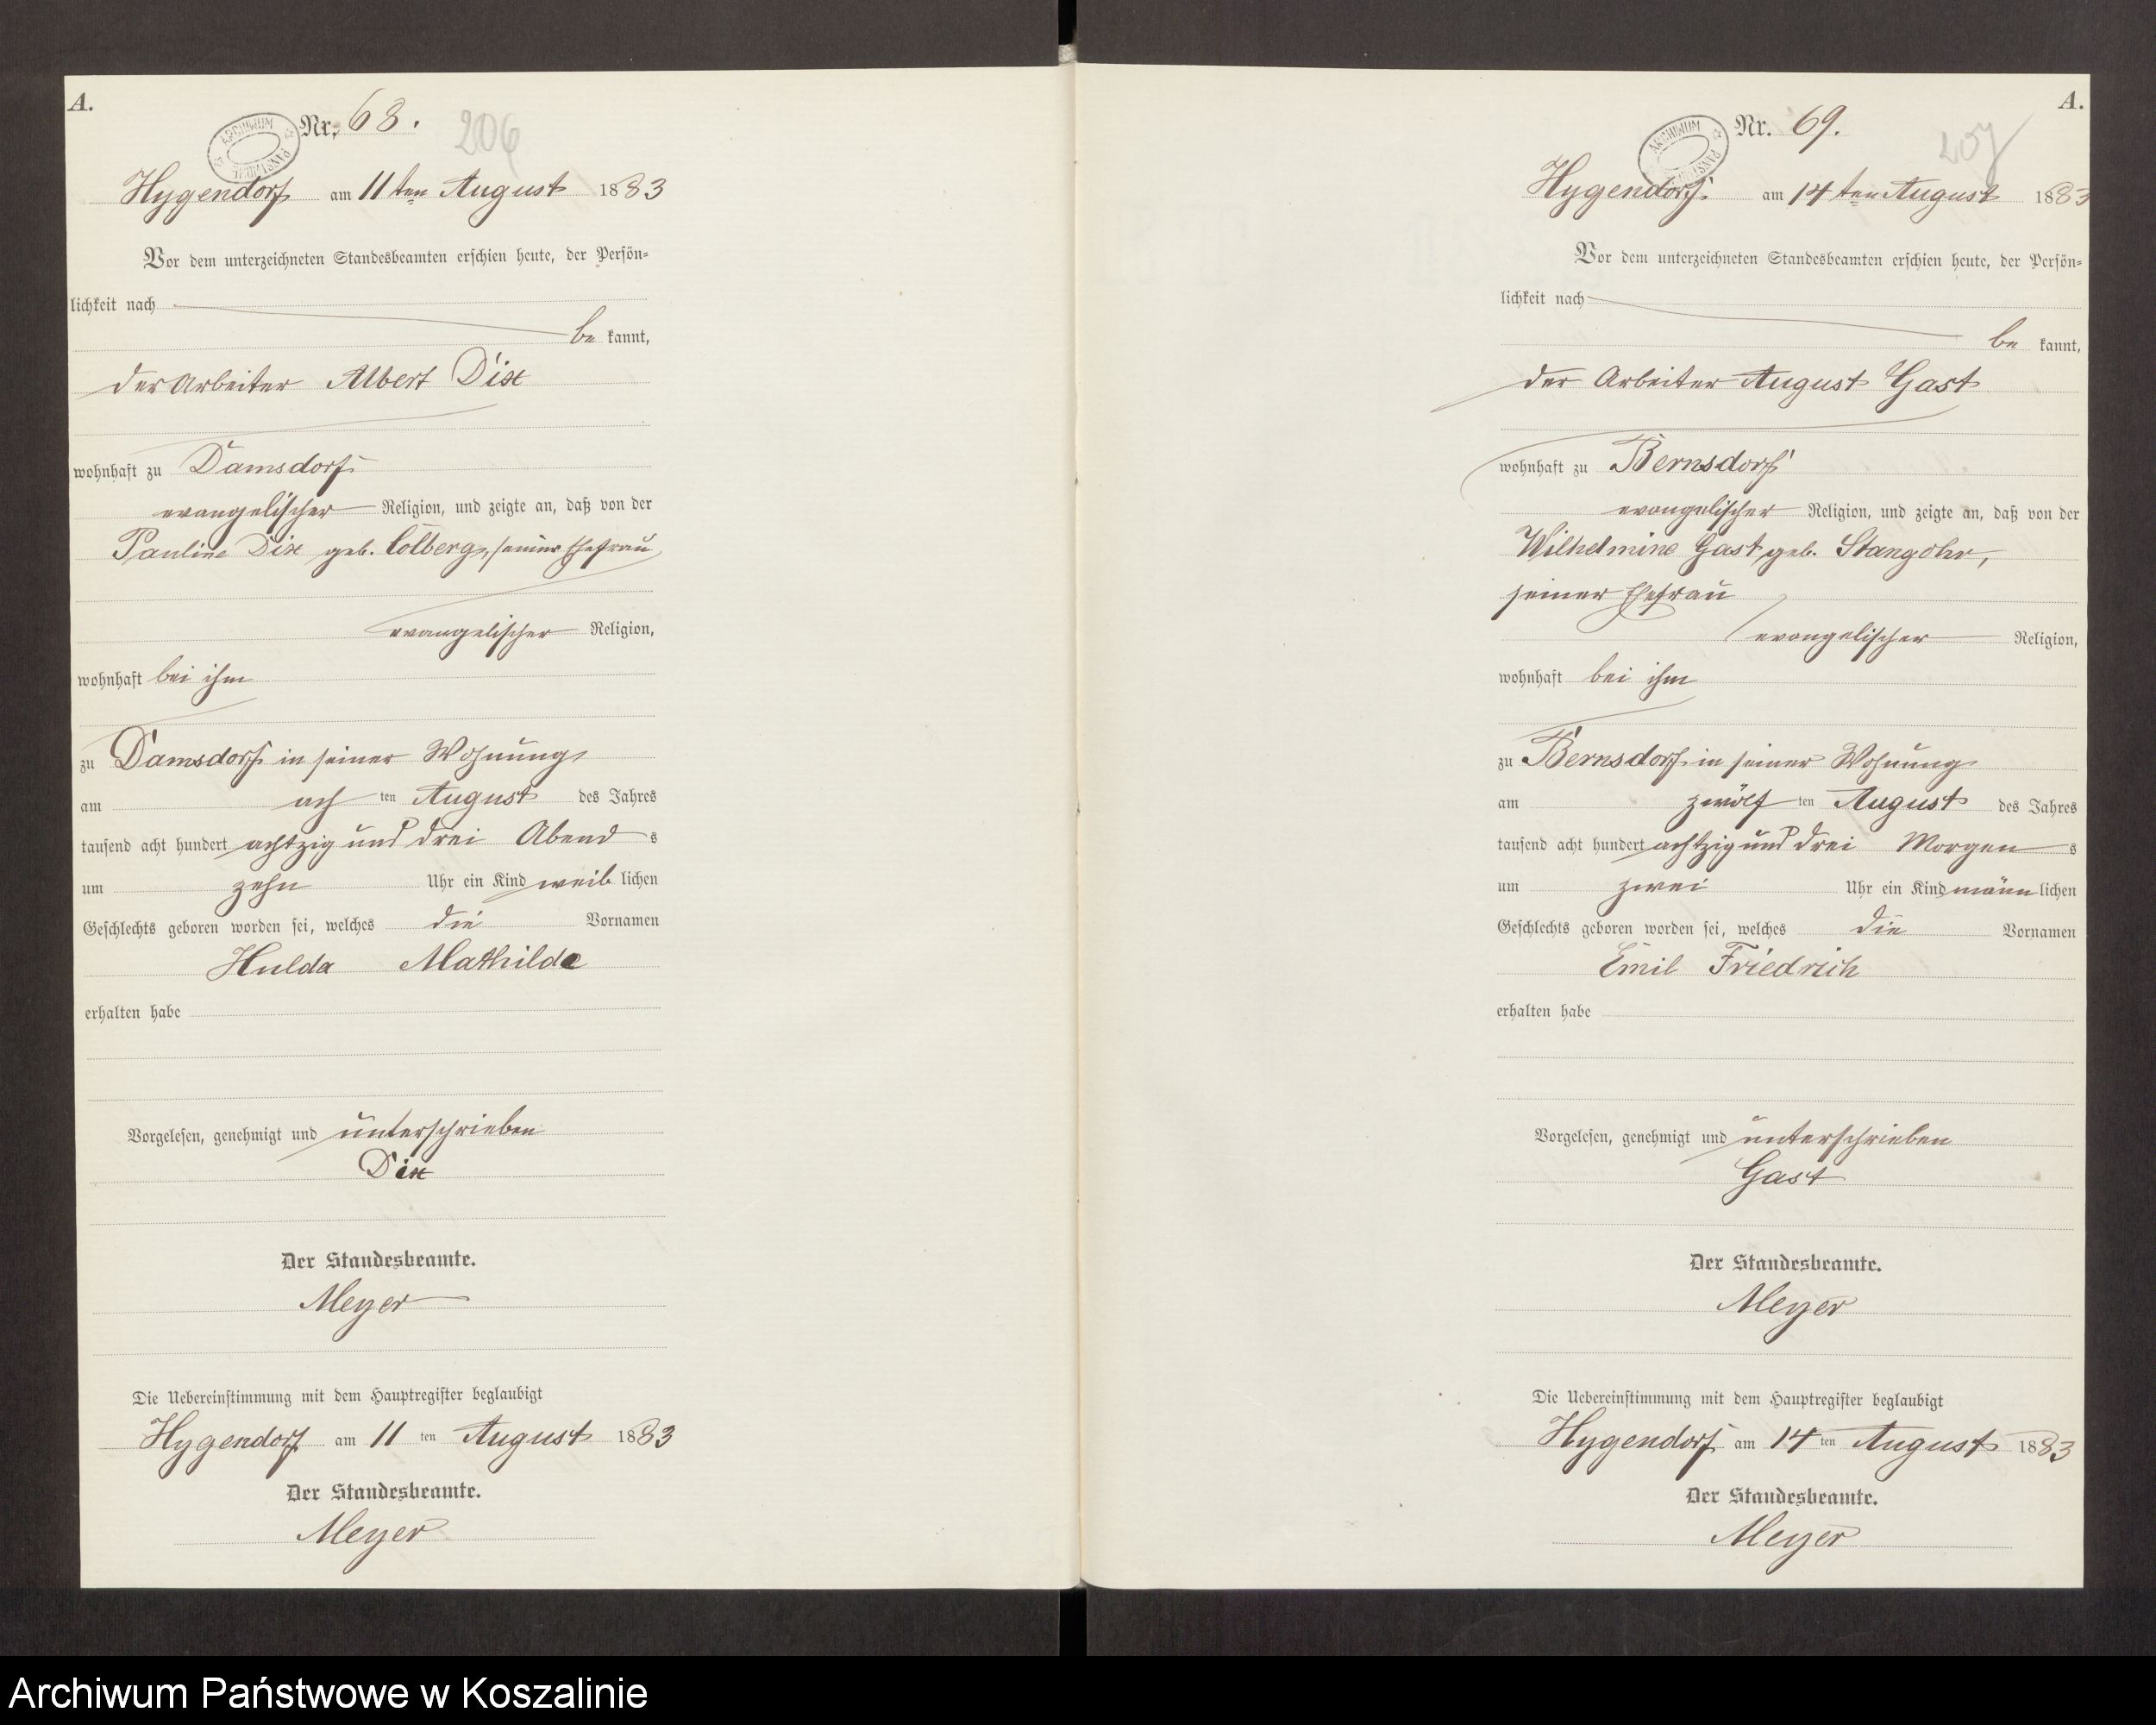 A.
Nr. 68.
206
ARCHIWUM
Hygendorf am 11ten August 1883
Vor dem unterzeichneten Standesbeamten erschien heute, der Persön-
lichkeit nach
be kannt,
der Arbeiter Albert Dix
wohnhaft zu Damsdorf
evangelischer Religion, und zeigte an, daß von der
Pauline Dix geb. Colberg, seiner Ehefrau
evangelischer Religion,
wohnhaft bei ihm
zu Damsdorf in seiner Wohnung
am ach ten August des Jahres
tausend acht hundert achtzig und drei Abend s
um zehn Uhr ein Kind weib lichen
Geschlechts geboren worden sei, welches die Vornamen
Hulda Mathilde
erhalten habe
Vorgelesen, genehmigt und unterschrieben
Dix
Der Standesbeamte.
Meyer
Die Uebereinstimmung mit dem Hauptregister beglaubigt
Hygendorf am 11 ten August 1883
Der Standesbeamte.
Meyer
A.
Nr. 69.
207
ARCHIWUM
Hygendorf am 14ten August 1883
Vor dem unterzeichneten Standesbeamten erschien heute, der Persön-
lichkeit nach
be kannt,
der Arbeiter August Gast
wohnhaft zu Bernsdorf
evangelischer Religion, und zeigte an, daß von der
Wilhelmine Gast geb. Stangohr,
seiner Ehefrau
evangelischer Religion,
wohnhaft bei ihm
zu Bernsdorf in seiner Wohnung
am zwölf ten August des Jahres
tausend acht hundert achtzig und drei Morgen s
um zwei Uhr ein Kind männ lichen
Geschlechts geboren worden sei, welches die Vornamen
Emil Friedrich
erhalten habe
Vorgelesen, genehmigt und unterschrieben
Gast
Der Standesbeamte.
Meyer
Die Uebereinstimmung mit dem Hauptregister beglaubigt
Hygendorf am 14 ten August 1883
Der Standesbeamte.
Meyer
Archiwum Państwowe w Koszalinie